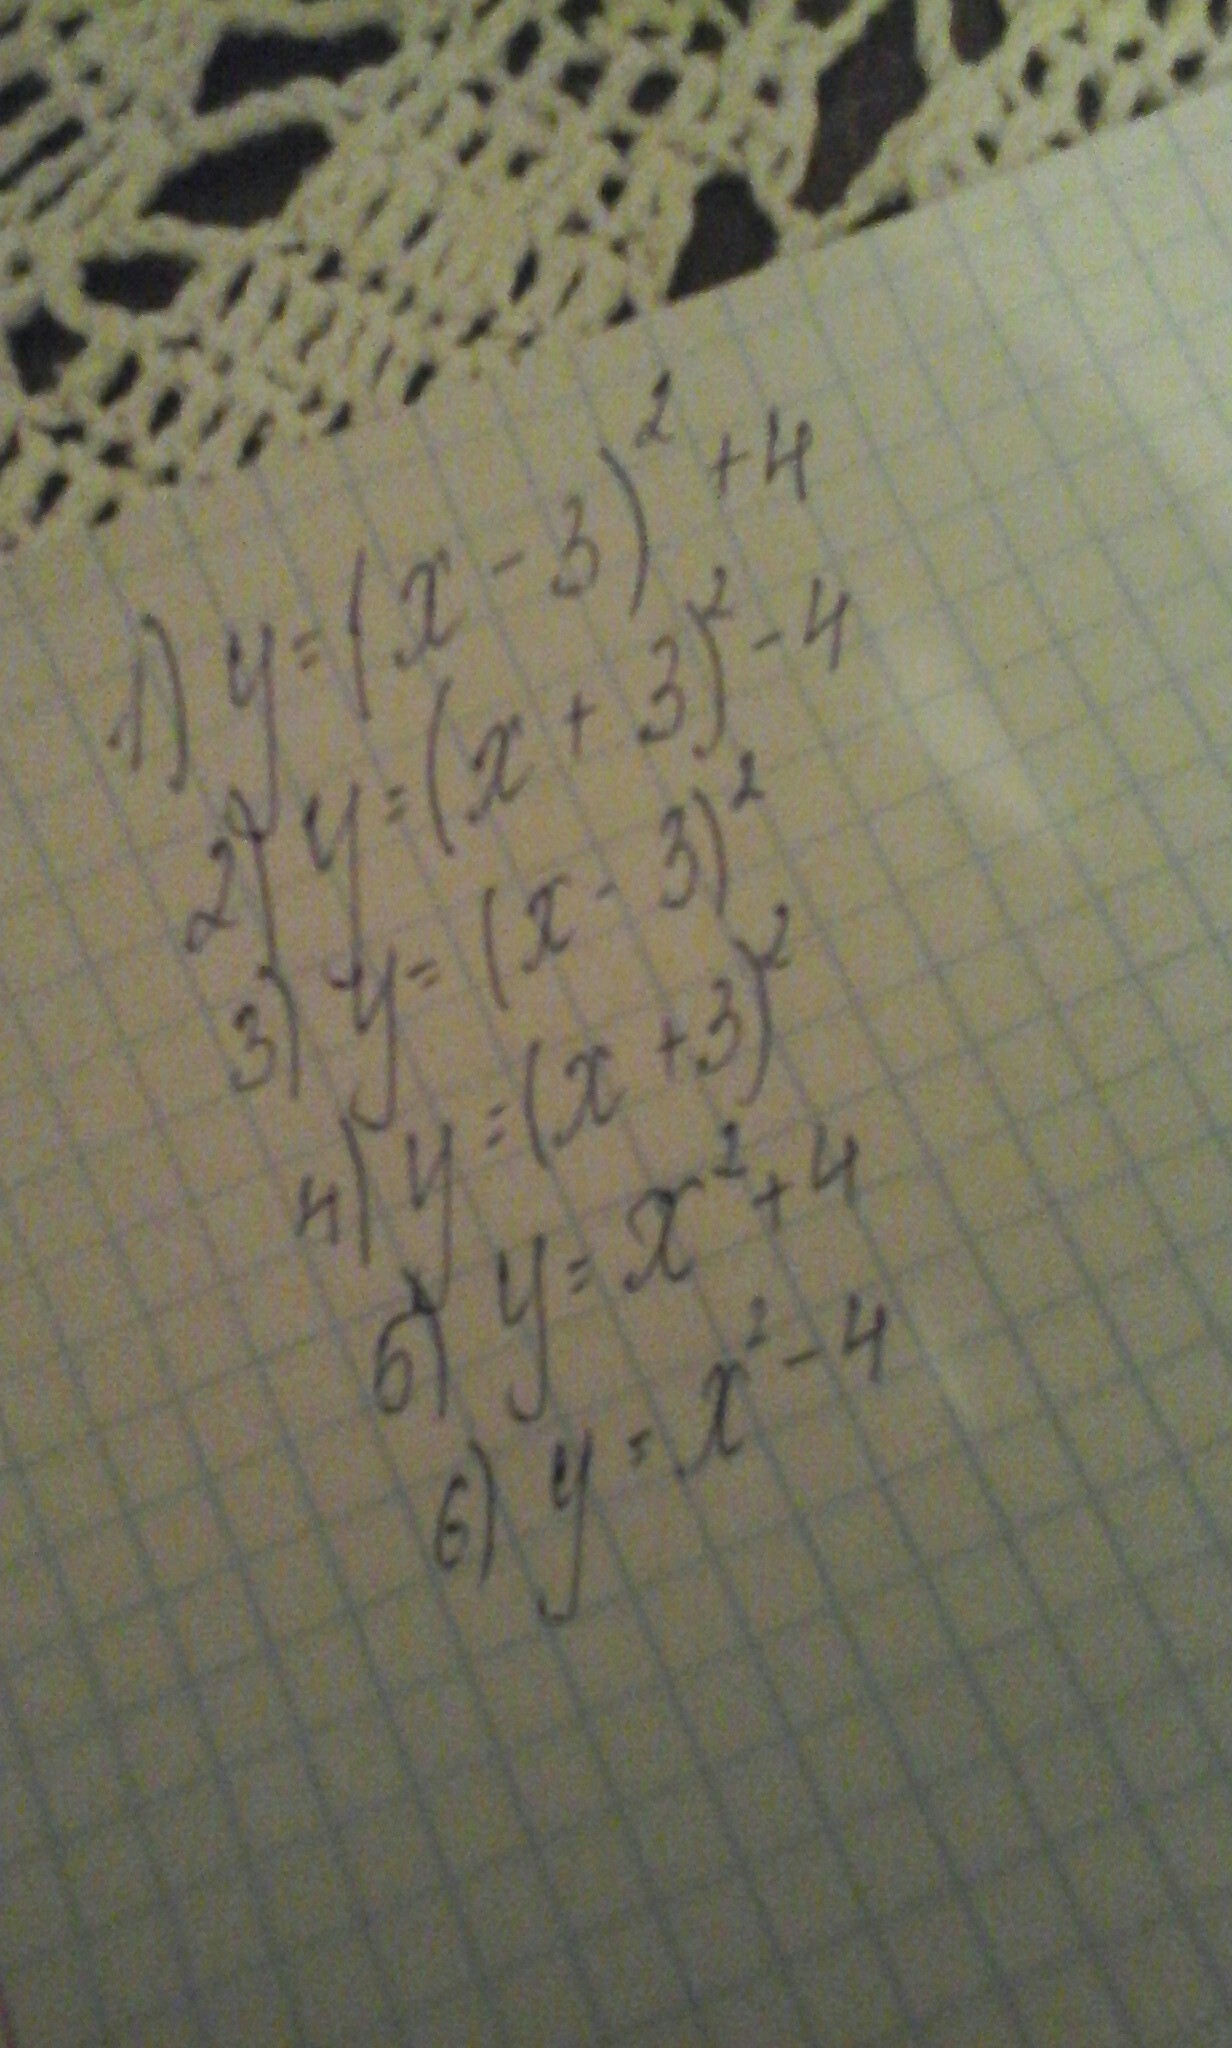 1) y = (x - 3)² + 4
2) y = (x + 3)² - 4
3) y = (x - 3)²
4) y = (x + 3)²
5) y = x² + 4
6) y = x² - 4